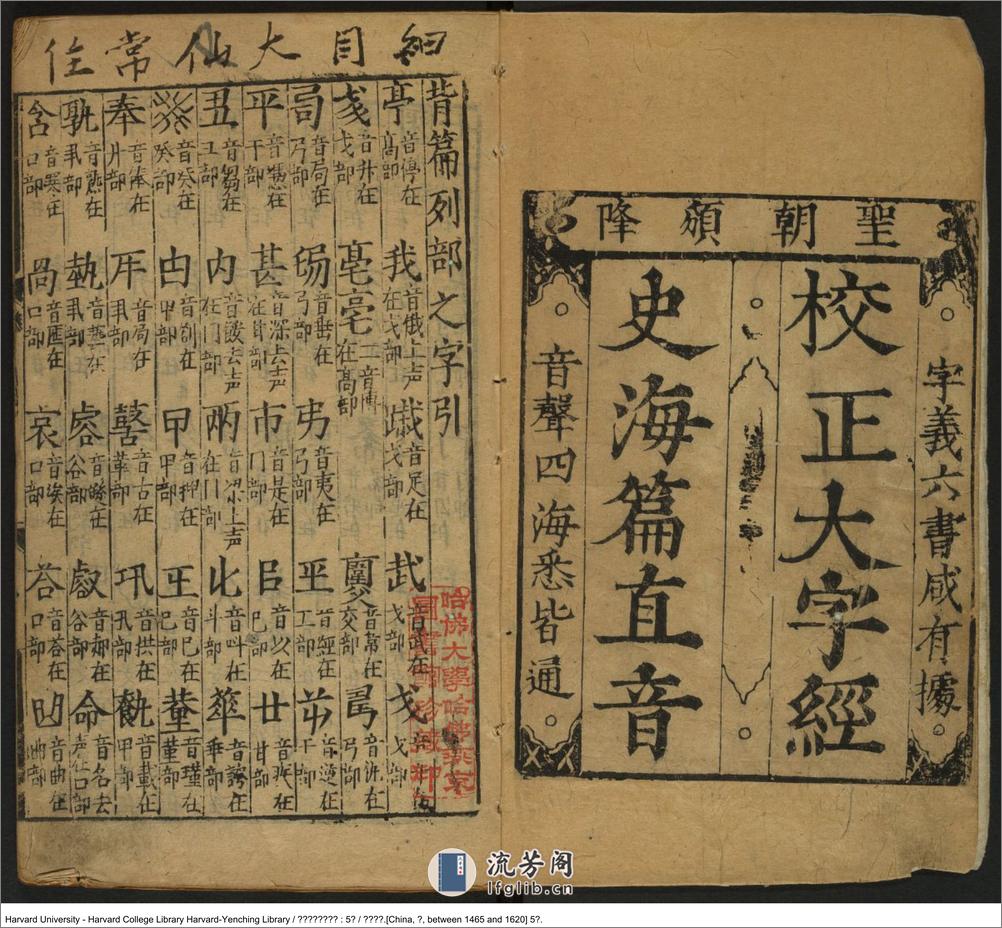 聖朝頒降
字義六書咸有據
校正大字經
史海篇直音
音聲四海悉皆通
細目大仙常住
背篇列部之字引
亭 音停在高部 我 音俄上声在戈部 音足在戈部 武 音武在戈部 戈
音井在戈部 亳亳 二音博在高部 音常在交部 音沂在弓部
音局在弓部 音垂在弓部 弗 音夷在弓部 音經在工部 音逆在干部
平 音憑在干部 甚 音深去声在甘部 市 音是在冂部 㠯 音以在巳部 廿 音疾在甘部
丑 音丒在丑部 內 在门部 兩 音浪上声在冂部 音叫在斗部 音誇在垂部
音癸在癸部 音訓在甲部 甲 音押在甲部 音巳在巳部 音瑾在堇部
奉 音俸在廾部 音局在 音古在革部 巩 音拱在丮部 音載在甲部
孰 音熟在丮部 埶 音藝在丮部 谷部 音郝在谷部 命 音名去声在口部
含 音寒在口部 咼 口部 哀 音埃在口部 荅 音答在口部 凹 音曲在曲部
哈佛大學哈佛燕京
圖書館珍藏印
流芳阁
lfglib.cn
Harvard University - Harvard College Library Harvard-Yenching Library / ???????? : 5? / ????.[China, ?, between 1465 and 1620] 5?.